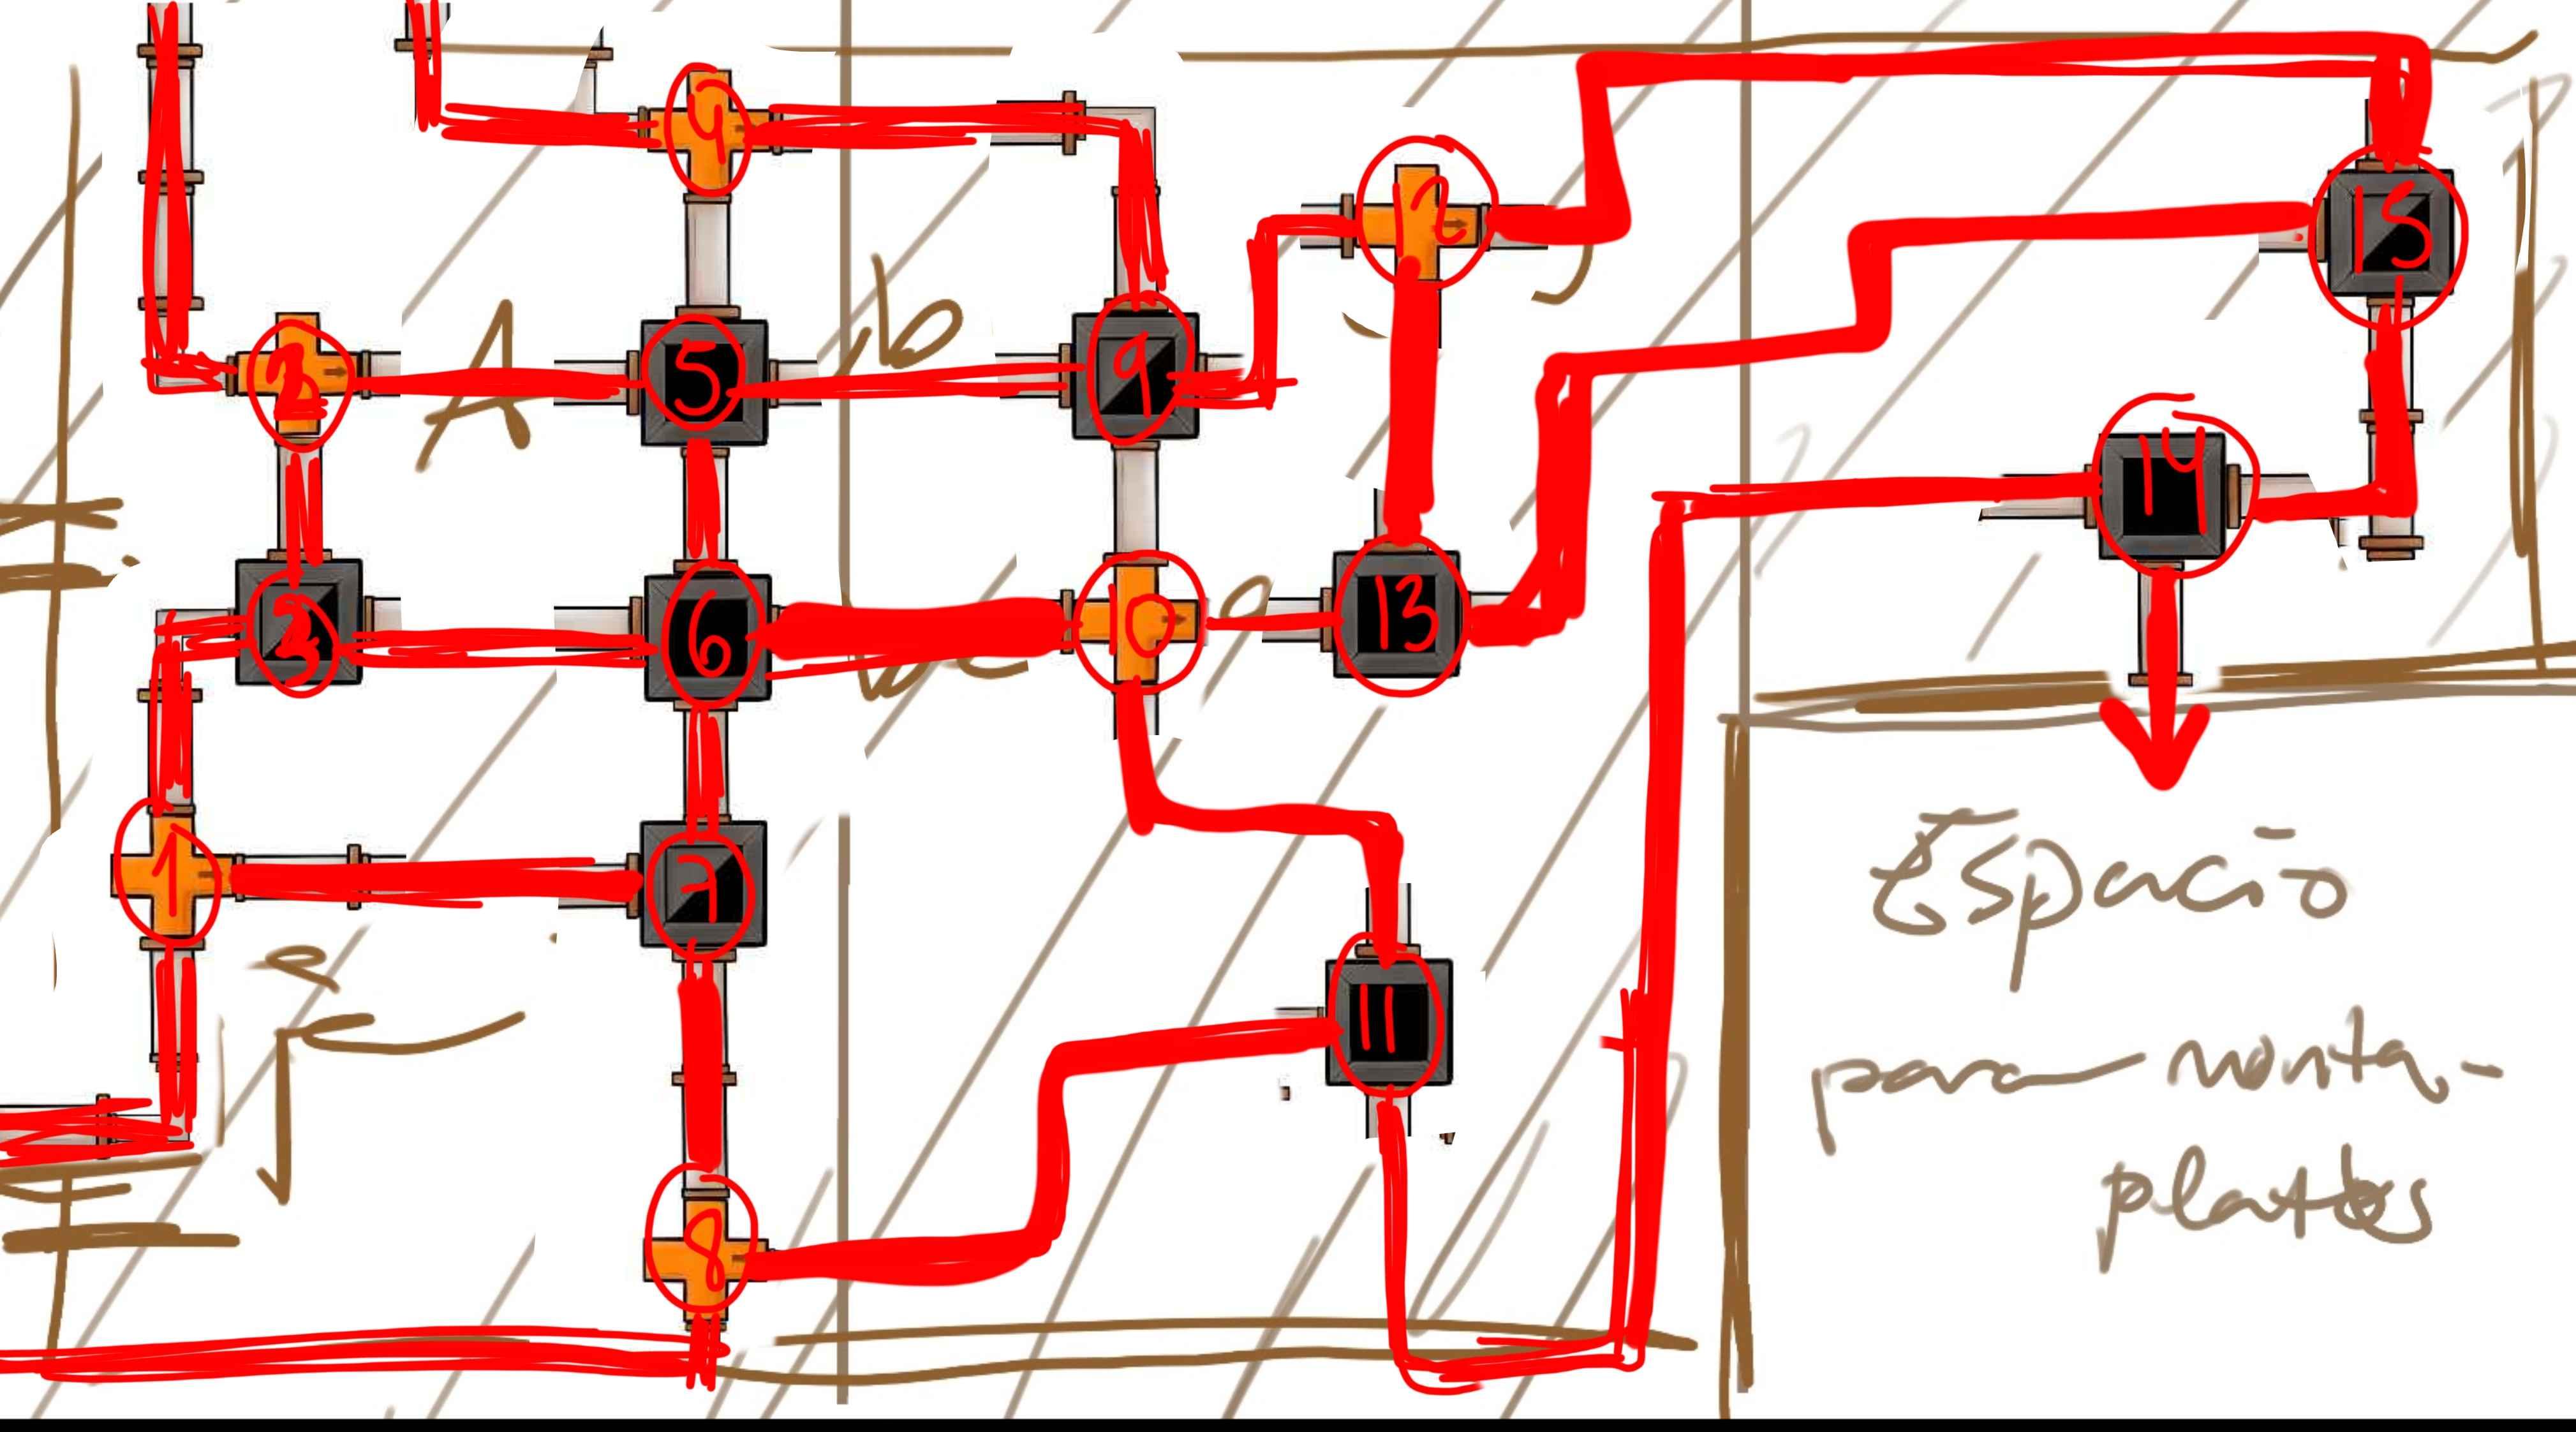 4
12
15
2
A
5
b
9
14
3
6
10
13
1
7
11
8
Espacio
para monta-
platos